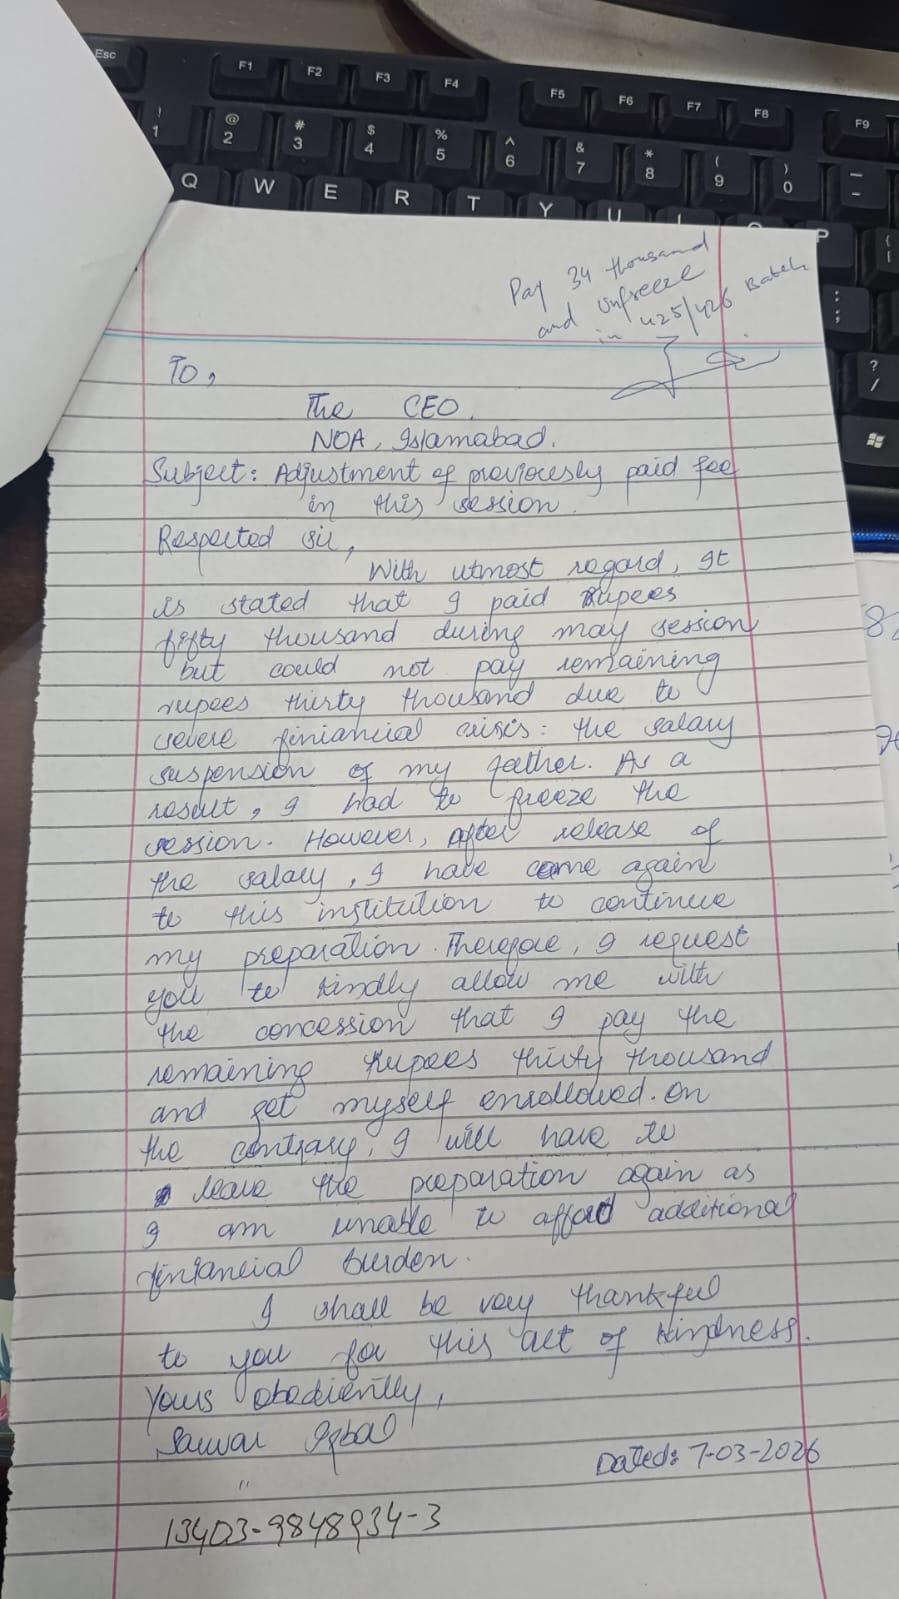 Esc F1 F2 F3 F4 F5 F6 F7 F8 F9
! 1 @ 2 # 3 $ 4 % 5 ^ 6 & 7 * 8 ( 9 ) 0
Q W E R T Y U I O P
Pay 34 thousand
and Unfreeze
in 425/426 Batch
To,
The CEO.
NOA, Islamabad.
Subject: Adjustment of previously paid fee
in this session.
Respected sir,
With utmost regard, It
is stated that I paid Rupees
fifty thousand during may session
but could not pay remaining
rupees thirty thousand due to
severe finiancial crisis: the salary
suspension of my father. As a
result, I had to freeze the
session. However, After release of
the salary, I have come again
to this institution to continue
my preparation. Therefore, I request
you to kindly allow me with
the concession that I pay the
remaining Rupees thirty thousand
and get myself enrollowed. On
the contrary, I will have to
leave the preparation again as
I am unable to afford additional
finiancial burden.
I shall be very thankful
to you for this act of kindness.
Yours obediently,
Sarwar Iqbal
Dated: 7-03-2026
"
13403-9848934-3